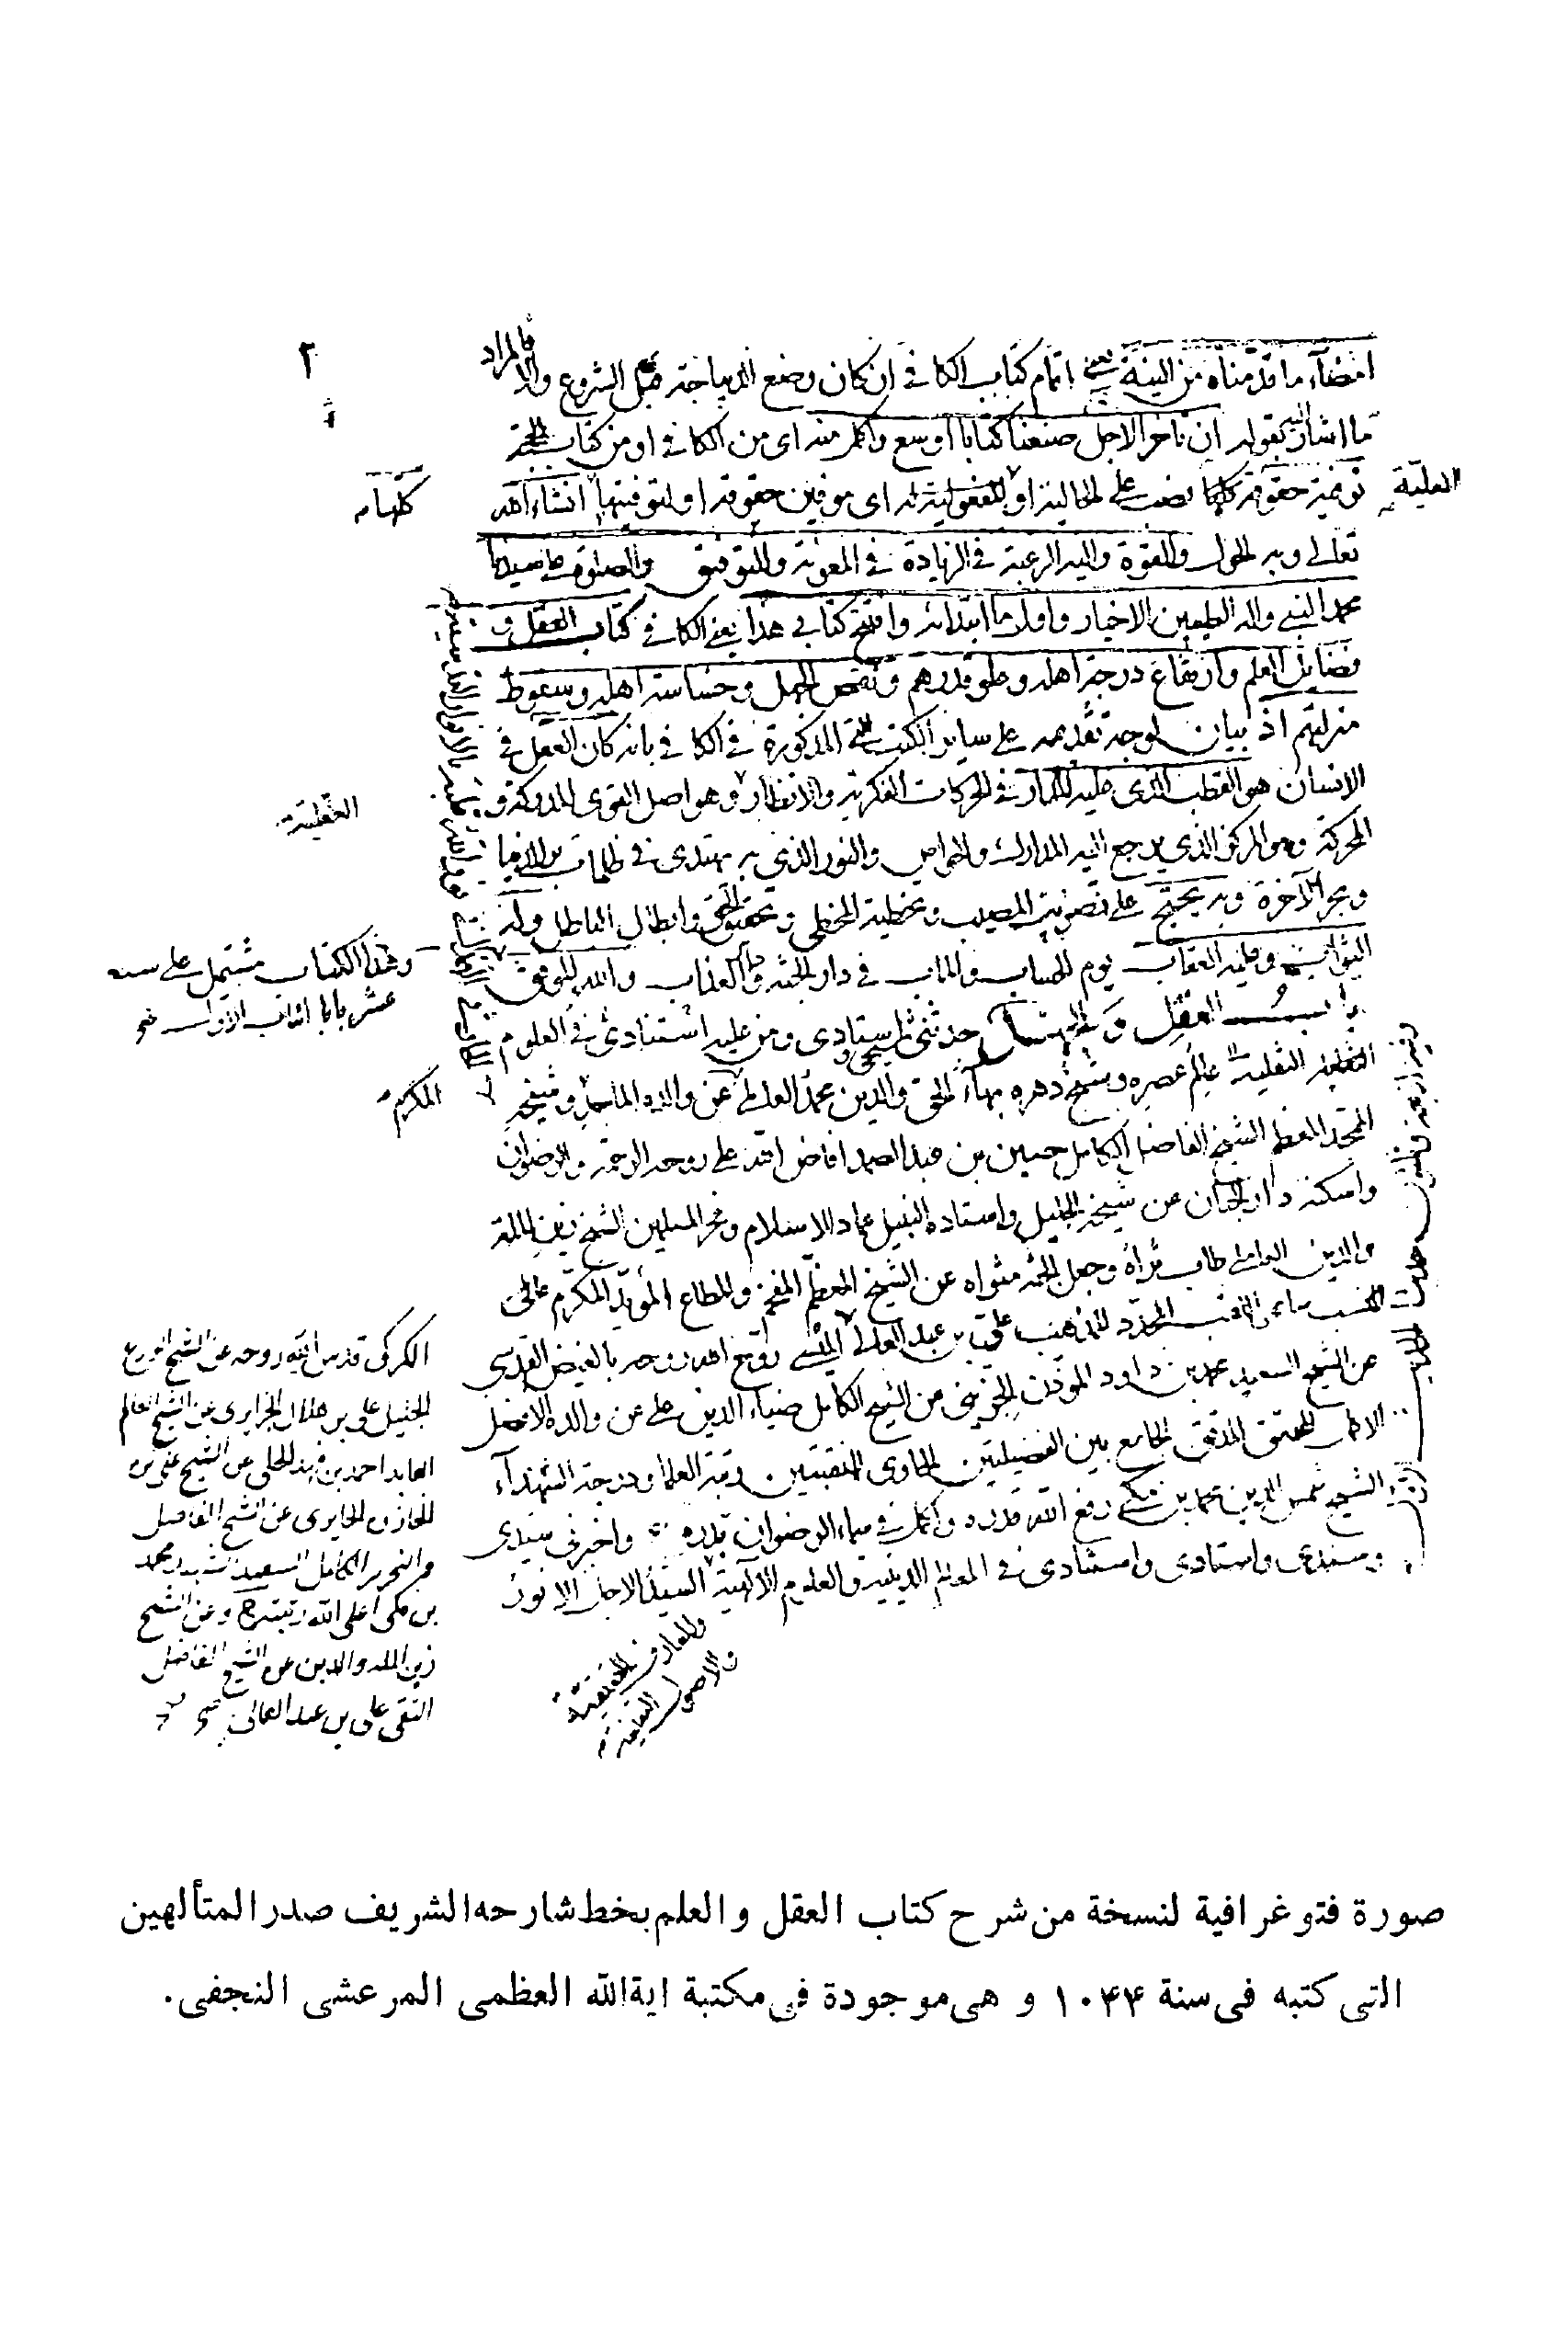 ٢
امضاء ما قدمناه من النية يعنى اتمام كتاب الكافى ان كان وضع الديباجة قبل الشروع والا فالمراد
ما اشار اليه بقوله ان تاخر الاجل صنعنا كتابا اوسع واكمل منه اى من الكافى او من كتاب الحجة
توفية حقوقه كلها نصب على الحالية او المفعولية له اى موفين حقوقه او لتوفيتها انشاء الله
العلية
كلها
تعالى وبه الحول والقوة واليه الرغبة فى الزيادة فى المعونة والتوفيق والصلوة على سيدنا
محمد النبى واله الطيبين الاخيار واول ما ابتدائه وافتتح كتابى هذا يعنى الكافى كتاب العقل و
فضايل العلم وارتفاع درجة اهله وعلو قدرهم ونقص الجهل وخساسة اهله وسقوط
منزلتهم اذ بيان لوجه تقديمه على ساير الكتب المذكورة فى الكافى بانه كان العقل فى
الانسان هو القطب الذى عليه المدار فى الحركات الفكرية والانظار وهو اصل القوى المدركة و
العقلية
المحركة وهو المركز الذى يرجع اليه المدارك والحواس والنور الذى به يهتدى فى ظلمات بر الدنيا
وبحر الآخرة وبه يحتج على تصويب المصيب وتخطية المخطى وتحقيق الحق وابطال الباطل وله
الثواب وعليه العقاب يوم الحساب والمآب فى دار الجنة ودار العذاب والله الموفق
وهذا الكتاب مشتمل على ستة
عشر بابا الباب الاول
باب العقل و الجهل حدثنى شيخى واستادى ومن عليه استنادى فى العلوم
النقلية عالم عصره وشيخ دهره بهاء الحق والدين محمد العاملى عن والده الماجد وشيخه
المكرم
الممجد المعظم الشيخ الفاضل الكامل حسين بن عبد الصمد افاض الله على روحه الرحمة والرضوان
واسكنه دار الجنان عن شيخه الجليل واستاده النبيل عماد الاسلام وفخر المسلمين الشيخ زين الملة
والدين العاملى طاب ثراه وجعل الجنة مثواه عن الشيخ المعظم المفخم والمطاع المؤيد المكرم عالى
النسب سامى اللقب المجدد للمذهب على بن عبد العالى الميسى روح الله روحه بالفيض القدسى
عن الشيخ السعيد محمد بن داود المؤذن الجزينى عن الشيخ الكامل ضياء الدين على عن والده الافضل
الاكمل المحقق المدقق الجامع بين الفضيلتين الحاوى المنقبتين رتبة العلماء ودرجة الشهداء
الشيخ شمس الدين محمد بن مكى رفع الله قدره واكمل فى سماء الرضوان بدره واخبرنى سيدى
وسندى واستادى واستنادى فى المعالم الدينية والعلوم الالهية السيد الاجل الانور
والمعارف الحقيقية
والاصول اليقينية
الكركى قدس الله روحه عن الشيخ الورع
الجليل على بن هلال الجزايرى عن الشيخ العالم
العابد احمد بن فهد الحلى عن الشيخ على بن
الخازن الحايرى عن الشيخ الفاضل
والنحرير الكامل السعيد الشهيد محمد
بن مكى اعلى الله رتبته ح وعن الشيخ
زين الملة والدين عن الشيخ الفاضل
التقى على بن عبد العالى
صورة فتوغرافية لنسخة من شرح كتاب العقل و العلم بخط شارحه الشريف صدر المتألهين
التى كتبه فى سنة ١٠۴۴ و هى موجودة فى مكتبة اية الله العظمى المرعشى النجفى.